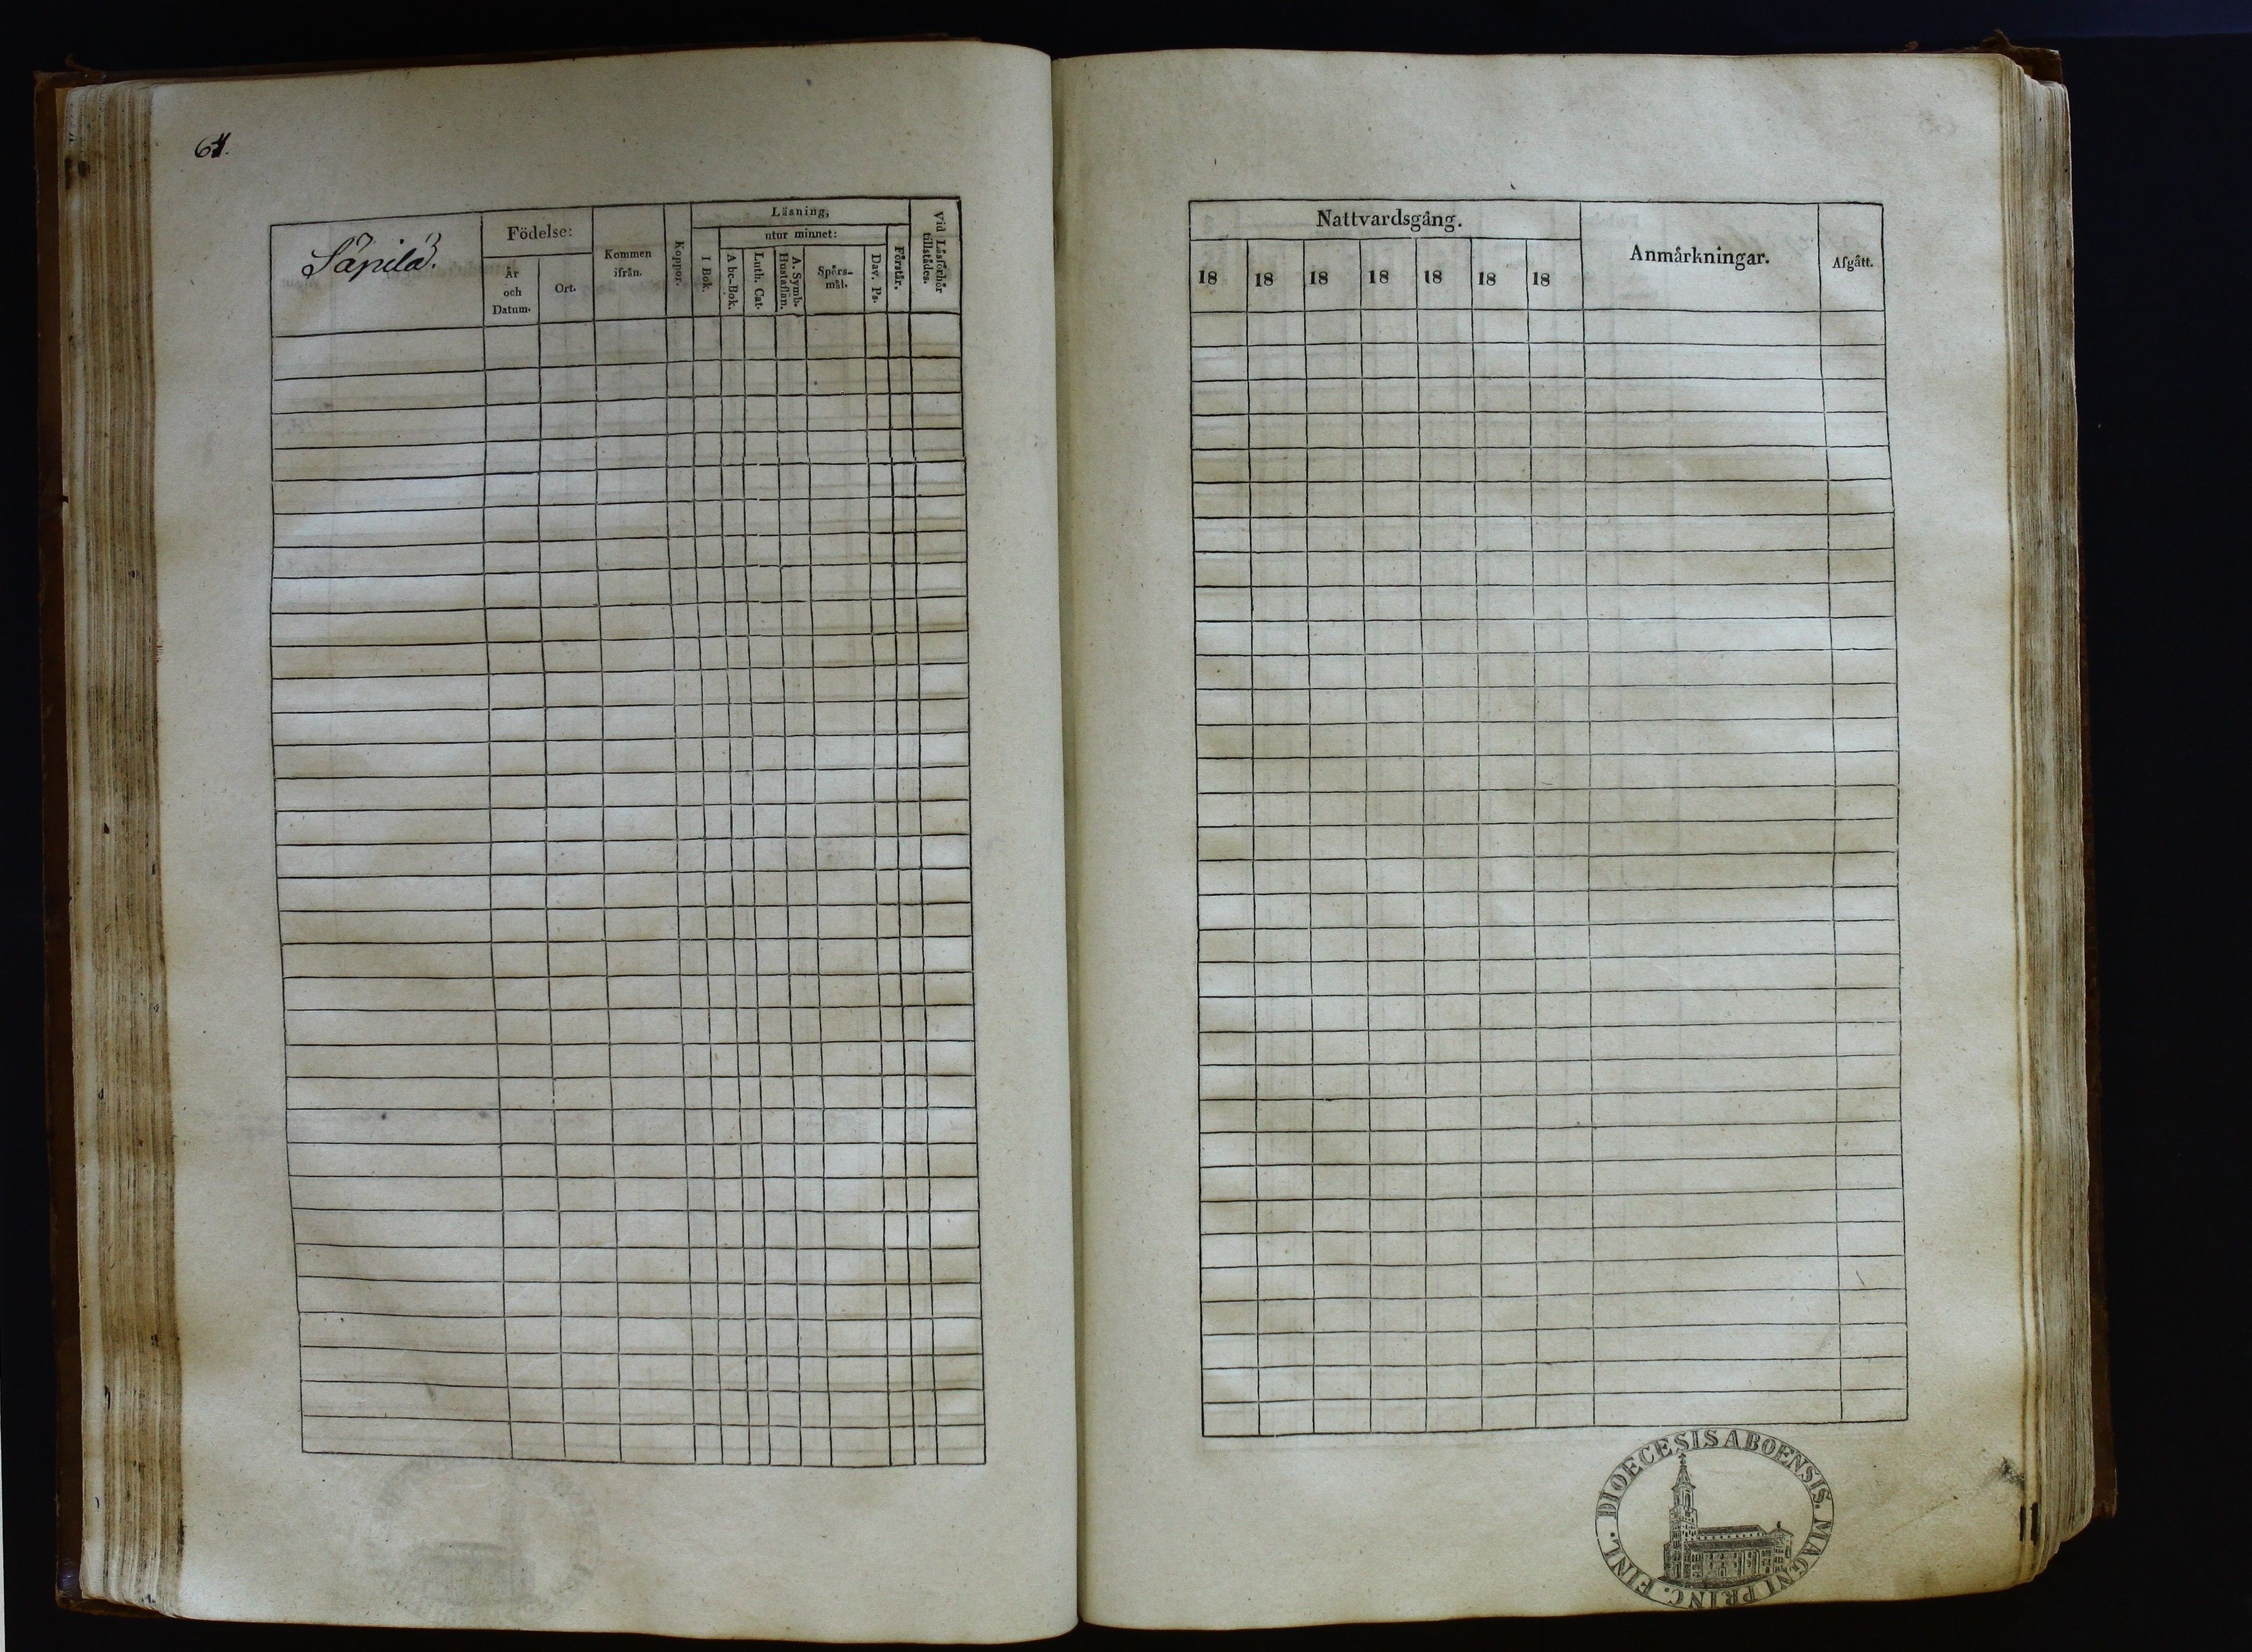 64.
Säpilä.
Födelse:
År
och
Datum.
Ort.
Kommen
ifrån.
Koppor.
Läsning,
utur minnet:
I Bok.
Abc-Bok.
Luth. Cat.
A. Symb.
Hustaflan.
Spörs-
mål.
Dav. Ps.
Förstår.
Vid Läsförhör
tillstädes.
Nattvardsgång.
18 18 18 18 18 18 18
Anmärkningar.
Afgått.
DIOECESIS ABOENSIS. MAGNI PRINC. FINL.